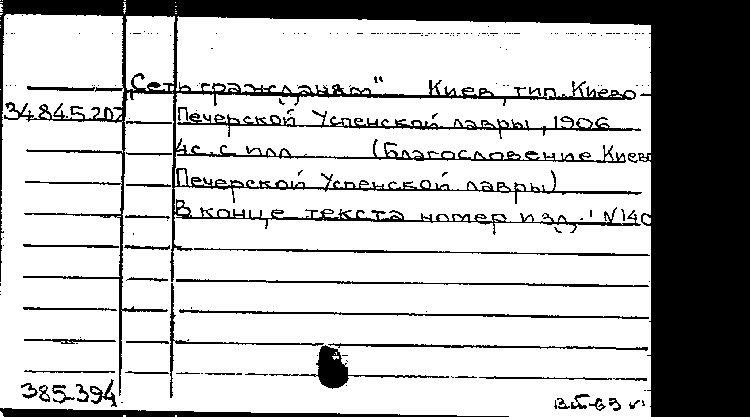 „Сеть гражданам" Киев, тип. Киево-
34 845.207
Печерской Успенской лавры, 1906
4с. с илл (Благословение Киево
Печерской Успенской лавры)
В конце текста номер изд.: N140
385-394